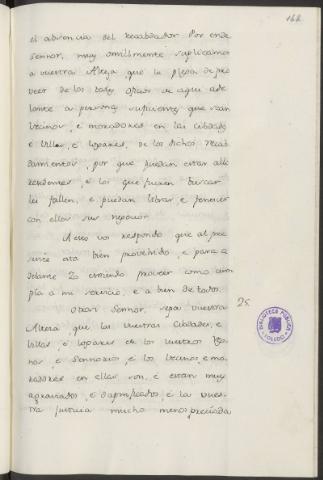 164
el absencia del Recabdador. Por ende
Sennor, muy omillmente suplicamos
a vuestra Alteza, que la plega de pro
veer de los tales oficios de aqui ade
lante a personas suficientes que sean
vecinos, e moradores en las cibdades
e Villas, e logares, de los dichos Recab
damientos, por que puedan estar alli
residentes, e los que fueren buscar
los fallen, e puedan librar e fenescer
con ellos sus negocios.
A esto vos respondo que al pre
sente esta bien proveido, e para a
delante Yo entiendo proveer como cum
pla a mi servicio, e a bien de todos.
25.
Otrosi Sennor, sepa vuestra
Altesa, que las vuestras Cibdades, e
Villas, e logares de los vuestros Reg
nos, e Sennorios, e los Vecinos, e mo
radores en ellas son, e estan muy
agraviados, e dapnificados, e la vues
tra justicia mucho menospreciada
BIBLIOTECA PUBLICA
TOLEDO